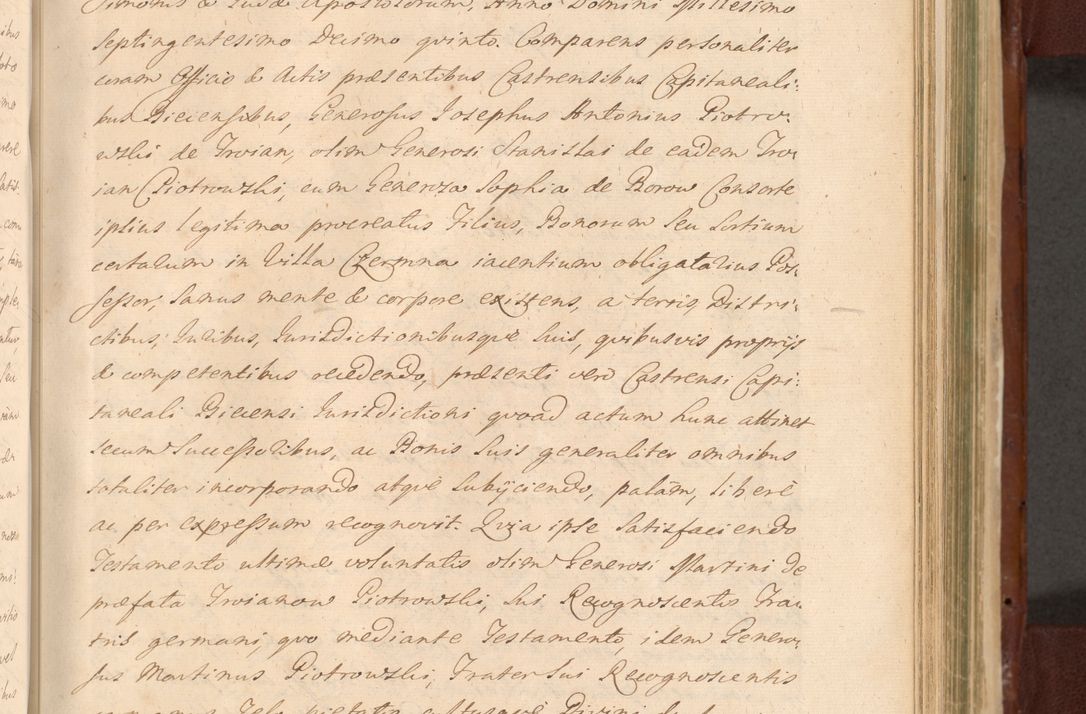 Simonis & Judæ Apostolorum, Anno Domini Millesimo
Septingentesimo Decimo qvinto. Comparens personaliter
coram Officio & Actis præsentibus Castrensibus Capitaneali-
bus Biecensibus, Generosus Josephus Antonius Piotro-
wski de Troian, olim Generosi Stanislai de eadem Tro-
ian Piotrowski, cum Generoza Sophia de Borow Consorte
ipsius legitima procreatus Filius, Bonorum seu Sortium
certarum in Villa Czermna iacentium obligatarius Pos-
sessor, sanus mente & corpore existens, a terris, Distri-
ctibus, Juribus, Jurisdictionibusqve suis, qvibusvis proprijs
& competentibus recedendo, præsenti vero Castrensi Capi-
taneali Biecensi Jurisdictioni qvoad actum hunc attinet
secum Successoribus, ac Bonis suis generaliter omnibus
totaliter incorporando atqve subijciendo, palam, liberè
ac per expressum recognovit. Qvia ipse satisfaciendo
Testamento ultimæ voluntatis olim Generosi Martini de
præfata Troianow Piotrowski, sui Recognoscentis Fra-
tris germani, qvo mediante Testamento, idem Genero-
sus Martinus Piotrowski, Frater sui Recognoscentis